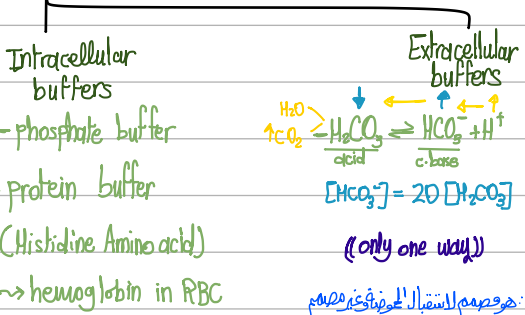 Intracellular
buffers
- phosphate buffer
protein buffer
(Histidine Amino acid)
→ hemoglobin in RBC
Extracellular
buffers
H₂O
↑CO₂
- H₂CO₃ ⇌ HCO₃⁻ + H⁺
acid
c.base
[HCO₃⁻] = 20 [H₂CO₃]
((only one way))
هو مصمم لاستقبال الحموضة وغير مصمم :